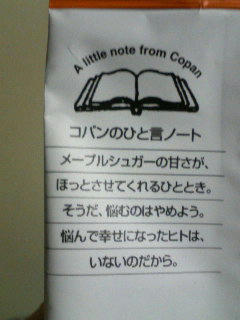 A little note from Copan
コパンのひと言ノート
メープルシュガーの甘さが、
ほっとさせてくれるひととき。
そうだ、悩むのはやめよう。
悩んで幸せになったヒトは、
いないのだから。